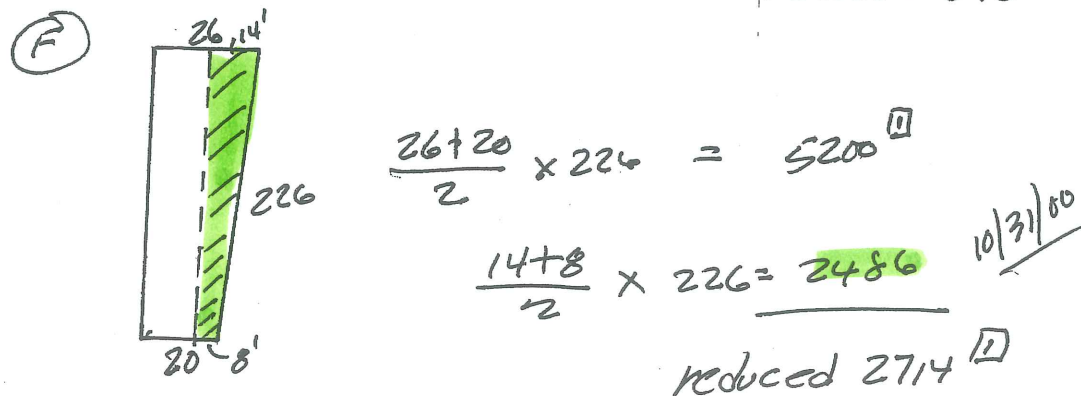 F
26, 14'
226
20 8'
26+20 / 2 × 226 = 5200
14+8 / 2 × 226 = 2486
10/31/00
reduced 2714